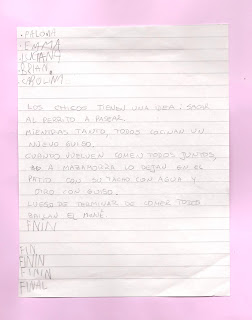 ·PALOMA
·EMMA
BRIAN
CAROLINA
LOS CHICOS TIENEN UNA IDEA: SACAR
AL PERRITO A PASEAR.
MIENTRAS TANTO, TODOS COCINAN UN
NUEVO GUISO.
CUANDO VUELVEN COMEN TODOS JUNTOS,
A MAZAMORRA LO DEJAN EN EL
PATIO CON SU TACHO CON AGUA Y
OTRO CON GUISO.
LUEGO DE TERMINAR DE COMER TODOS
BAILAN EL
FIN
FINAL